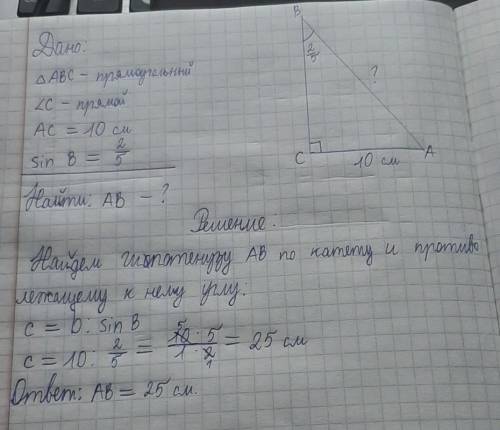 Дано:
△ABC - прямоугольный
∠C - прямой
AC = 10 см
sin B = 2/5
Найти: AB - ?
B
2/5
?
C
10 см
A
Решение:
Найдем гипотенузу AB по катету и противо
лежащему к нему углу.
c = b : sin B
c = 10 : 2/5 = (10 · 5)/(1 · 2) = 25 см
5
1
Ответ: AB = 25 см.